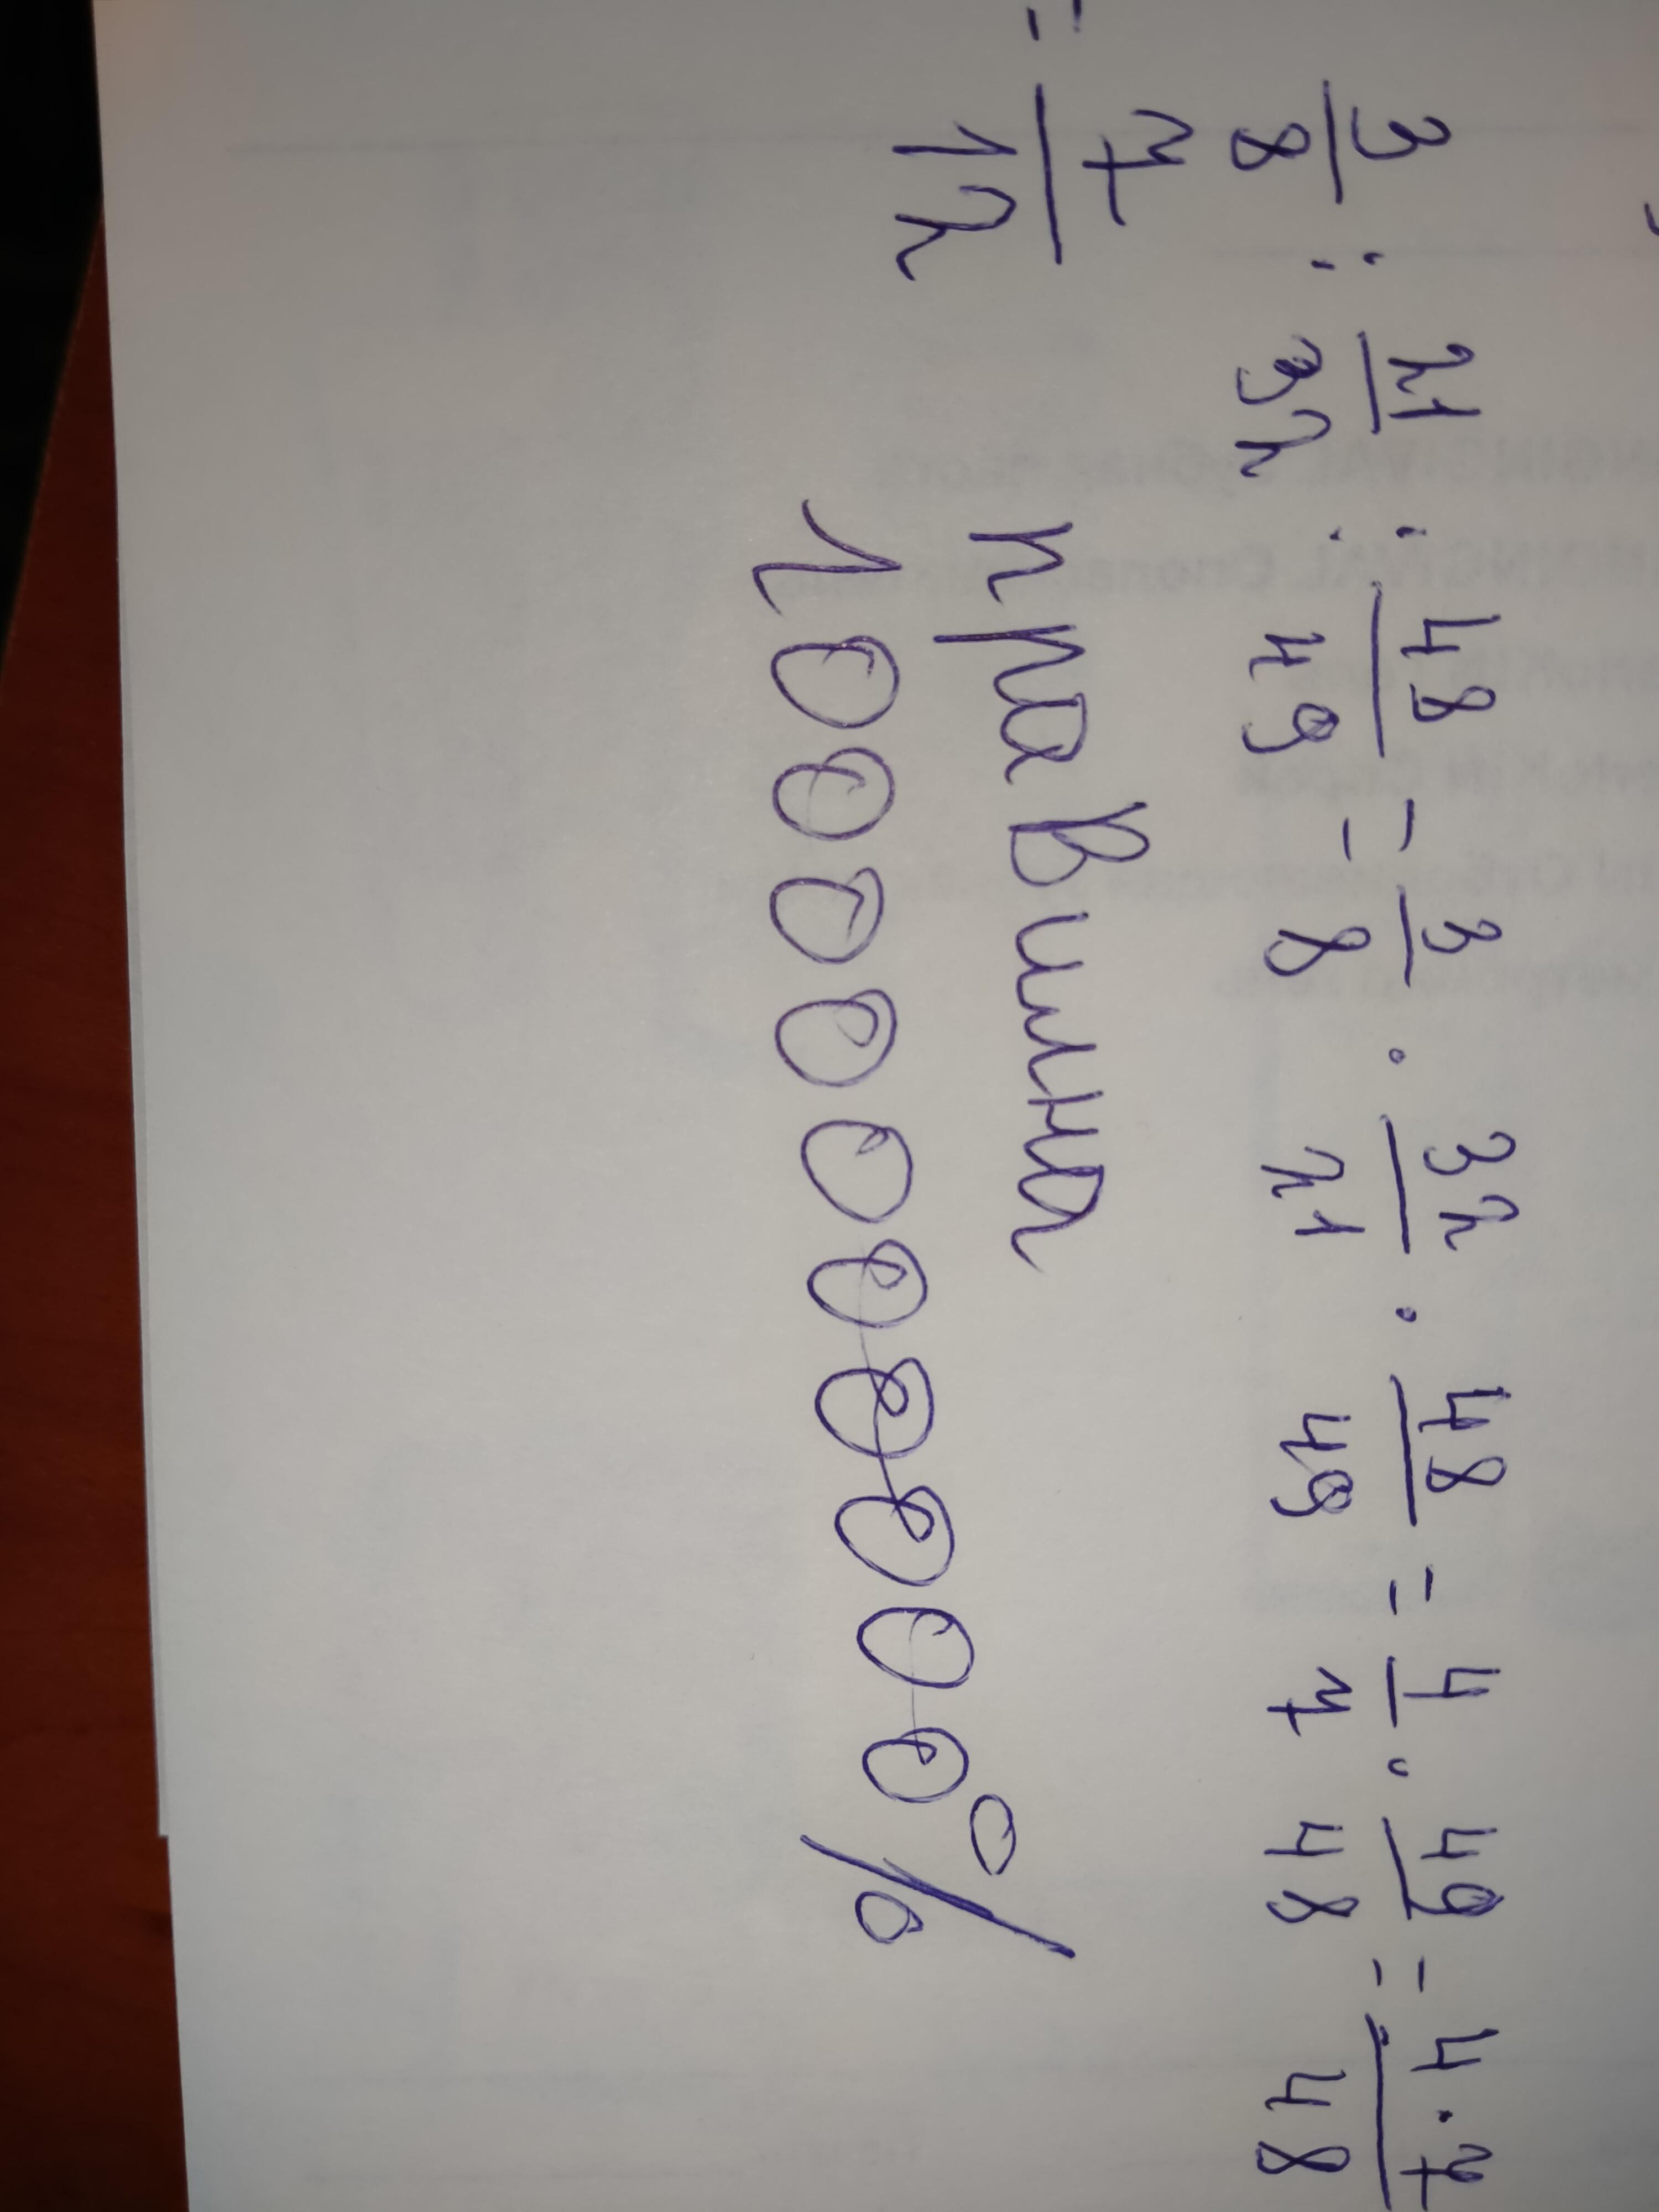 3/8 : 21/32 : 48/49 = 3/8 · 32/21 · 48/49 = 4/7 · 49/48 = 4·7/48
= 7/12
правильна
10000000000%